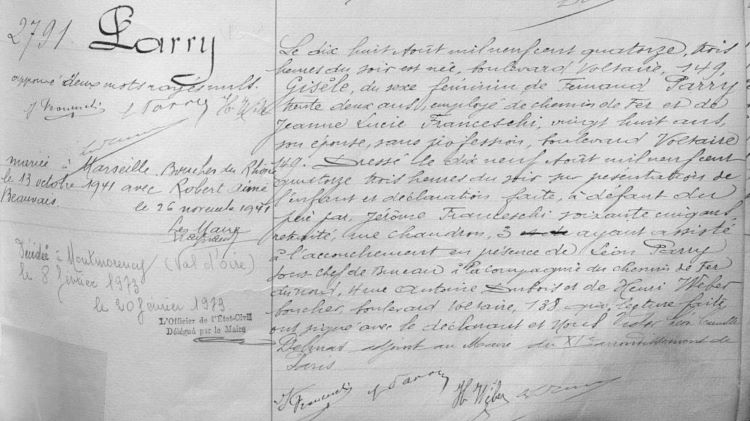 2791. Parry
approuvé deux mots rayés nuls.
J. Franceschi L Parry H. Wéber
marié à Marseille Bouches du Rhône
le 13 octobre 1941 avec Robert Aimé
Beauvais. le 26 novembre 1941
Le Maire
Décédée à Montmorency (Val d'Oise)
le 8 février 1973
le 20 février 1973
L'Officier de l'État-Civil
Délégué par le Maire
Le dix huit Août mil neuf cent quatorze, trois
heures du soir est née, boulevard Voltaire, 149,
Gisèle, du sexe féminin de Fernand Parry
trente deux ans, employé de chemins de Fer et de
Jeanne Lucie Franceschi, vingt huit ans,
son épouse, sans profession, boulevard Voltaire
149. Dressé le dix neuf Août mil neuf cent
quatorze trois heures du soir sur présentation de
l'enfant et déclaration faite, à défaut du
père par, Jérôme Franceschi soixante cinq ans,
retraité, rue Chaudron, 3 ayant assisté
à l'accouchement en présence de Léon Parry
sous-chef de Bureau à la Compagnie du chemin de Fer
du Nord, rue Antoine Dubois et de Henri Wéber
boucher, boulevard Voltaire, 138 qui, lecture faite
ont signé avec le déclarant et Nous, Victor Camille
Delmas adjoint au Maire du XIe arrondissement de
Paris
J. Franceschi L Parry H. Wéber